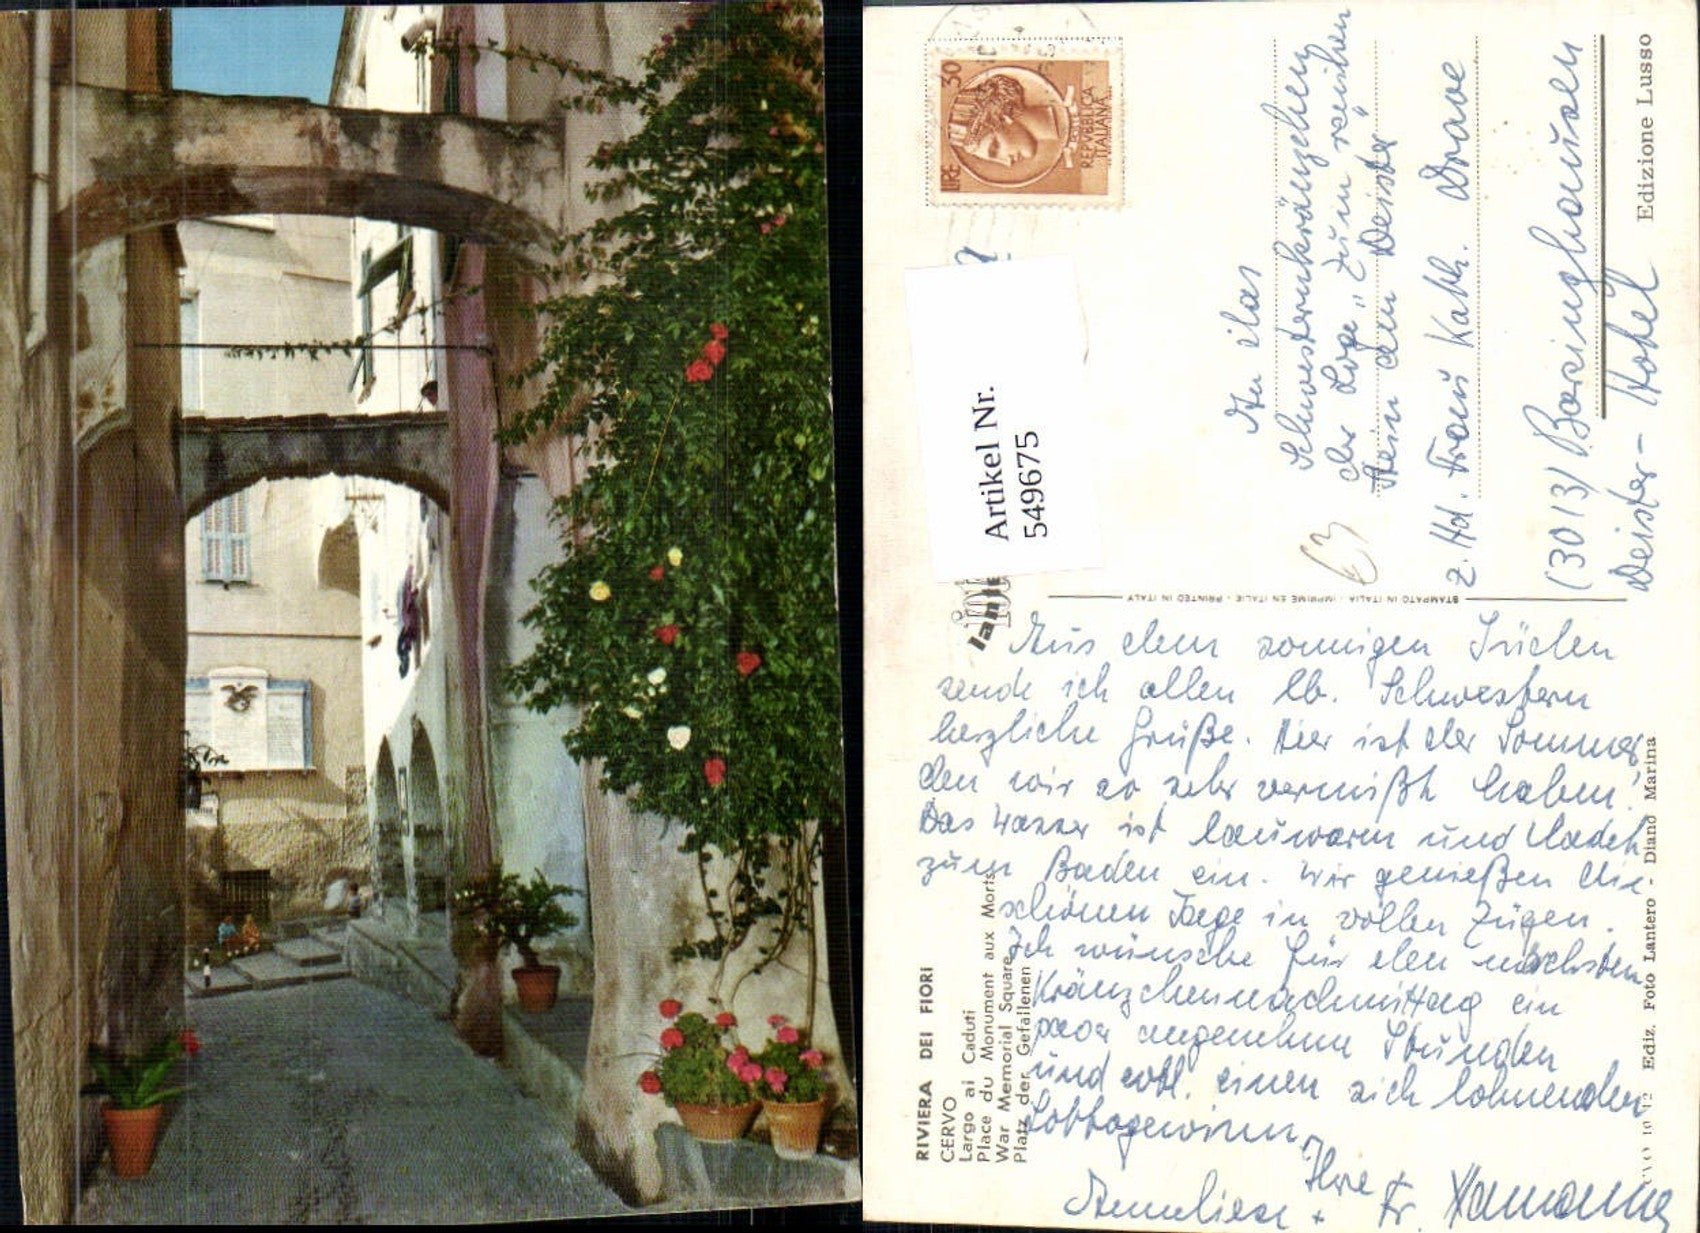 LIRE 30
REPVBBLICA
ITALIANA
POSTE
Artikel Nr.
5496675
An das
Schwesternkränzchen
der Loge "Zum reinen
Stein am Deister"
z. Hd. Frau Kath.
(3013) Barsinghausen
Deister-Hotel
Edizione Lusso
STAMPATO IN ITALIA - IMPRIMÉ EN ITALIE - PRINTED IN ITALY
Aus dem sonnigen Süden
sende ich allen lb. Schwestern
herzliche Grüße. Hier ist der Sommer,
den wir so sehr vermißt haben!
Das Wasser ist lauwarm und ladet
zum Baden ein. Wir genießen die
schönen Tage in vollen Zügen.
Ich wünsche für den nächsten
Kränzchennachmittag ein
paar angenehme Stunden
und evtl. einen sich lohnenden
Lottogewinn.
Ihre
Anneliese + Fr.
RIVIERA DEI FIORI
CERVO
Largo ai Caduti
Place du Monument aux Morts
War Memorial Square
Platz der Gefallenen
Ediz. Foto Lantero - Diano Marina